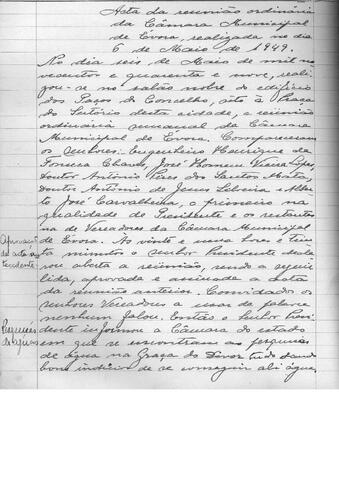 Acta da reunião ordinária
da Câmara Municipal
de Évora, realizada no dia
6 de Maio de 1949.
No dia seis de Maio de mil no
vecentos e quarenta e nove, reali
zou-se no salão nobre do edifício
dos Paços do Concelho, sito à Praça
do Sertório desta cidade, a reünião
ordinária semanal da Câmara
Municipal de Évora. Compareceram
os senhores: Engenheiro Henrique da
Fonseca Chaves, José Homem Vieira Lopes,
Doutor António Pires dos Santos Mata,
Doutor António de Jesus e Alber
to José Carvalheira, o primeiro na
qualidade de Presidente e os restantes
na de Vereadores da Câmara Municipal
de Évora. Às vinte e uma horas e trin
ta minutos o senhor Presidente decla
rou aberta a reünião, sendo a seguir
lida, aprovada e assinada a acta
da reünião anterior. Convidados os
senhores Vereadores a usar da palavra
nenhum falou. Então o senhor Presi
dente informou a Câmara do estado
em que se encontram as pesquisas
de água na Graça do Divor tudo dando
bons indícios de se conseguir ali água,
Aprovação
da acta an
tecedente
Pesquisas
de águas